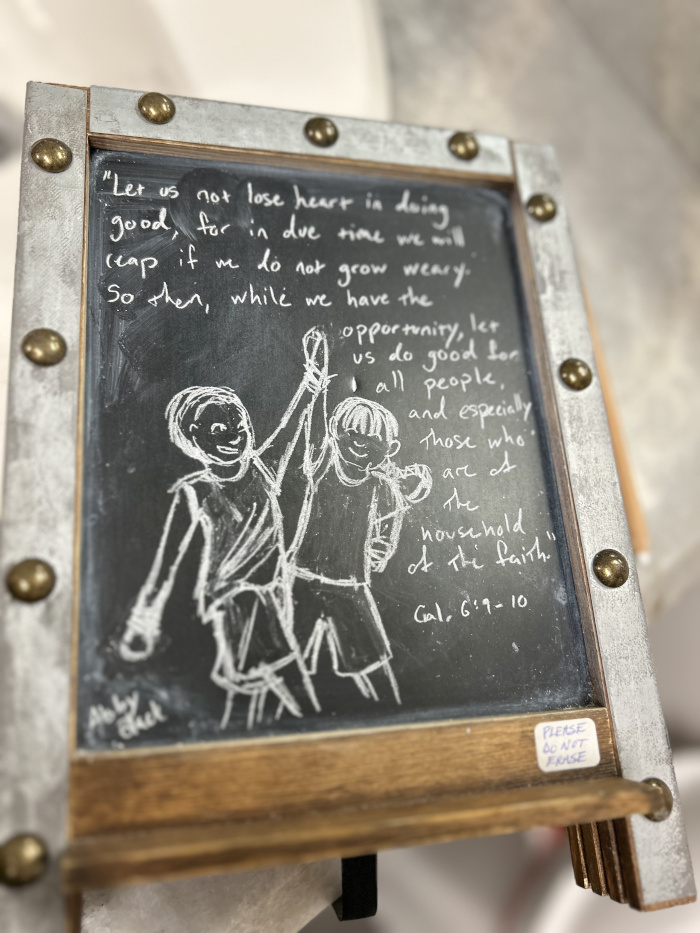 "Let us not lose heart in doing
good, for in due time we will
reap if we do not grow weary.
So then, while we have the
opportunity, let
us do good for
all people,
and especially
those who
are of
the
household
of the faith"
Gal. 6:9-10
Abby
PLEASE
DO NOT
ERASE